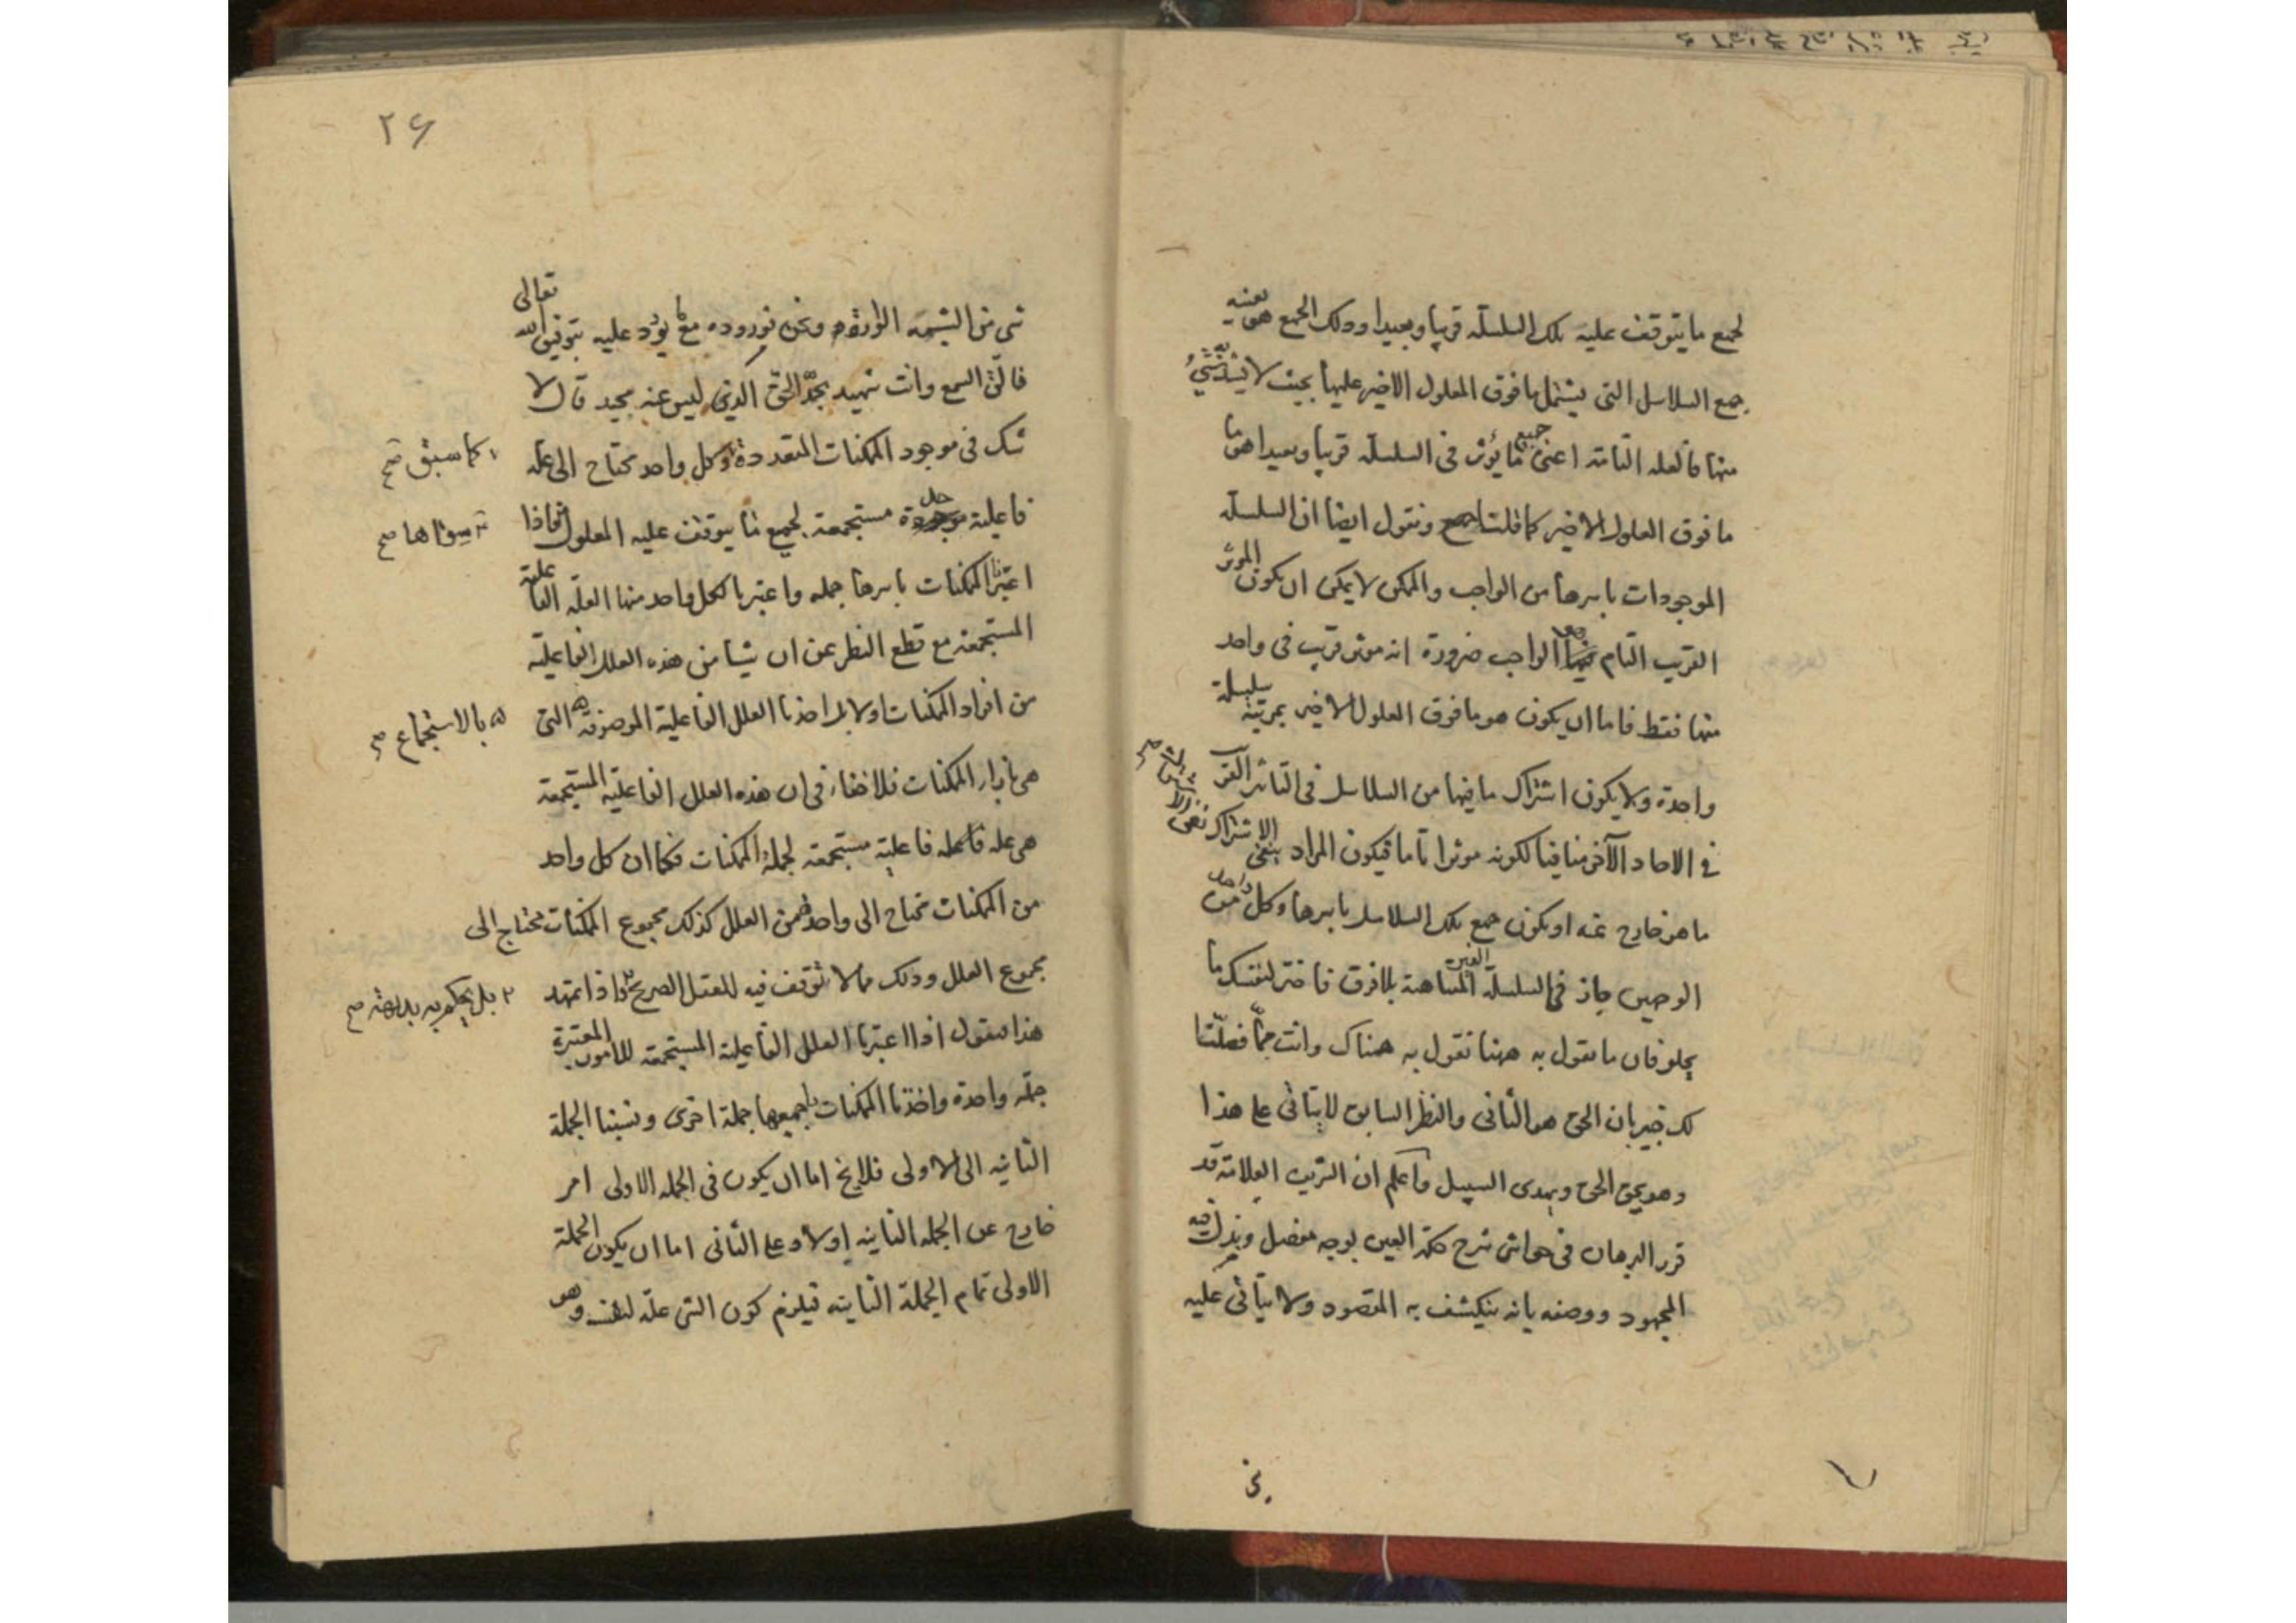 لجميع ما يتوقف عليه تلك السلسلة قريبا وبعيدا وذلك الجميع هو بعينه
جميع السلاسل التى يشتمل ما فوق المعلول الاخير عليها بحيث لا يشذ شئ
منها فالعلة التامة اعنى جميع ما يؤثر فى السلسلة قريبا وبعيدا هو ما
ما فوق المعلول الاخير كما قلنا ونقول ايضا ان السلسلة
الموجودات باسرها من الواجب والممكن لا يمكن ان يكون المؤثر
القريب التام فيها الواجب ضرورة انه مؤثر قريب فى واحد
منها فقط فاما ان يكون هو ما فوق المعلول الاخير بمرتبة
واحدة ولا يكون اشتراك ما فيها من السلاسل فى التاثير القريب
فى الاحاد الآخر منافيا لكونه موثرا تاما فيكون المراد بنفى الاشتراك نفى
ما هو خارج عنه او يكون جميع تلك السلاسل باسرها وكل واحد من
الوجهين جاز فى السلسلة الغير المتناهية بلا فرق فاختر لنفسك ما
يحلو فان ما نقول به ههنا نقول به هناك وانت مما فصلنا
لك خبير بان الحق هو الثانى والنظر السابق لا يتاتى على هذا
وهو يحق الحق ويهدى السبيل واعلم ان الشريف العلامة قد
قرر البرهان فى حواشى شرح حكمة العين بوجه مفصل وبذل فيه
المجهود ووصفه بانه ينكشف به المقصود ولا يتأتى عليه
٢۶
شئ من الشبهة الواردة ونحن نورده مع ما يرد عليه بتوفيق الله تعالى
فالق السمع وانت شهيد بجد الحق الذى ليس عنه محيد قال لا
شك فى موجود الممكنات المتعددة وكل واحد محتاج الى علة
كما سبق صح
فاعلية مستجمعة لجميع ما يتوقف عليه المعلول فاذا
سواها صح
اعتبرنا الممكنات باسرها جملة واعتبرنا لكل واحد منها العلة الفاعلية
المستجمعة مع قطع النظر عن ان شيئا من هذه العلل الفاعلية
من افراد الممكنات اولا بل اخذنا العلل الفاعلية الموصوفة التى
بالاستجماع صح
هى بازاء الممكنات فلا خفاء فى ان هذه العلل الفاعلية المستجمعة
هى علة فاعلية مستجمعة لجملة الممكنات فكما ان كل واحد
من الممكنات محتاج الى واحد من العلل كذلك مجموع الممكنات محتاج الى
مجموع العلل وذلك مما لا توقف فيه للعقل الصريح واذا تمهد
بل يحكم به بديهة صح
هذا فنقول اذا اعتبرنا العلل الفاعلية المستجمعة للامور المعتبرة
جملة واحدة واخذنا الممكنات باجمعها جملة اخرى ونسبنا الجملة
الثانية الى الاولى فلا يخ اما ان يكون فى الجملة الاولى امر
خارج عن الجملة الثانية اولا وعلى الثانى اما ان يكون الجملة
الاولى تمام الجملة الثانية فيلزم كون الشئ علة لنفسه وهو